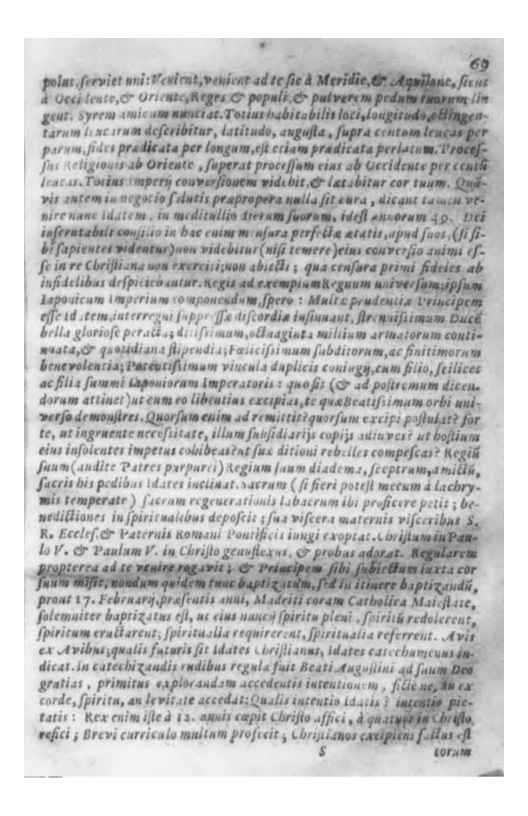 69
polus, serviet uni: Venient, venient ad te sic à Meridie, & Aquilone, sicut
à Occidente, & Oriente, Reges & populi, & pulverem pedum tuorum lin
gent. Syrem amicum nunciat. Totius habitabilis loci, longitudo, octingen-
tarum leucarum describitur, latitudo, angusta, supra centum leucas per
parum, fides prædicata per longum, est etiam prædicata per latum. Proces-
sus Religionis ab Oriente, superat processum eius ab Occidente per centũ
leucas. Totius imperij conversionem videbit, & lætabitur cor tuum. Quã-
vis autem in negotio salutis præpropera nulla sit cura, dicant tamen ve-
nire nunc Idatem, in meditullio dierum suorum, idest annorum 49. Dei
inscrutabili consilio in hac enim mensura perfectæ ætatis, apud suos, (si si-
bi sapientes videntur) non videbitur (nisi temere) eius conversio animi es-
se in re Christiana non exercisi; non abiecti; qua censura primi fideles ab
infidelibus despiciebantur. Regis ad exemplum Regnum universum; ipsum
Iaponicum Imperium componendum, spero: Multæ prudentiæ Principem
esse Idatem, interregni suppressæ discordiæ insinuant, strenuissimum Ducẽ
bella gloriose peracta; ditissimum, octuaginta millium armatorum conti-
nuata, & quotidiana stipendia; Fœlicissimum subditorum, ac finitimorum
benevolentia; Potentissimum vincula duplicis coniugij, cum filio, scilicet
ac filia summi Iaponiorum Imperatoris: quo sit (& ad postremum dicen.
dorum attinet) ut eum eo libentius excipias, te quæ Beatissimam orbi uni-
verso demonstres. Quorsum enim ad te mittit? quorsum excipi postulat? for
te, ut ingruente necessitate, illum subsidiarijs copijs adiuves? ut hostium
eius insolentes impetus cohibeas? ut suæ ditioni rebelles compescas? Regiũ
suum (audite Patres purpurei) Regium suum diadema, sceptrum, amictũ,
sacris his pedibus Idates inclinat. Sacrum (si fieri potest mecum à lachry-
mis temperate) sacrum regenerationis labacrum ibi proficere petit; be-
nedictiones in spiritualibus deposcit; sua viscera maternis visceribus S.
R. Eccles. & Paternis Romani Pontificis iungi exoptat. Christum in Pau-
lo V. & Paulum V. in Christo genuflexus, & probus adorat. Regularem
propterea ad te venire rogavit; & Principem sibi subiectum iuxta cor
suum misit, nondum quidem tunc baptizatum, sed in itinere baptizandũ,
prout 17. Februarij, præsentis anni, Madriti coram Catholica Maiestate,
solemniter baptizatus est, uc eius nuncij spiritu pleni, spiritũ redolerent,
spiritum eructarent; spiritualia requirerent, spiritualia referrent. Avis
ex Avibus; qualis futuris sit Idates Christianus, Idates catechumenus in-
dicat. In catechizandis rudibus regula fuit Beati Augustini ad suum Deo
gratias, primitus explorandam accedentis intentionem, ficte ne, an ex
corde, spiritu, an levitate accedat: Qualis intentio Idatis? intentio pie-
tatis: Rex enim iste à 12. annis cœpit Christo affici, à quatuor in Christo,
refici; Brevi curriculo multum profecit; Christianos excipiens factus est
S torum